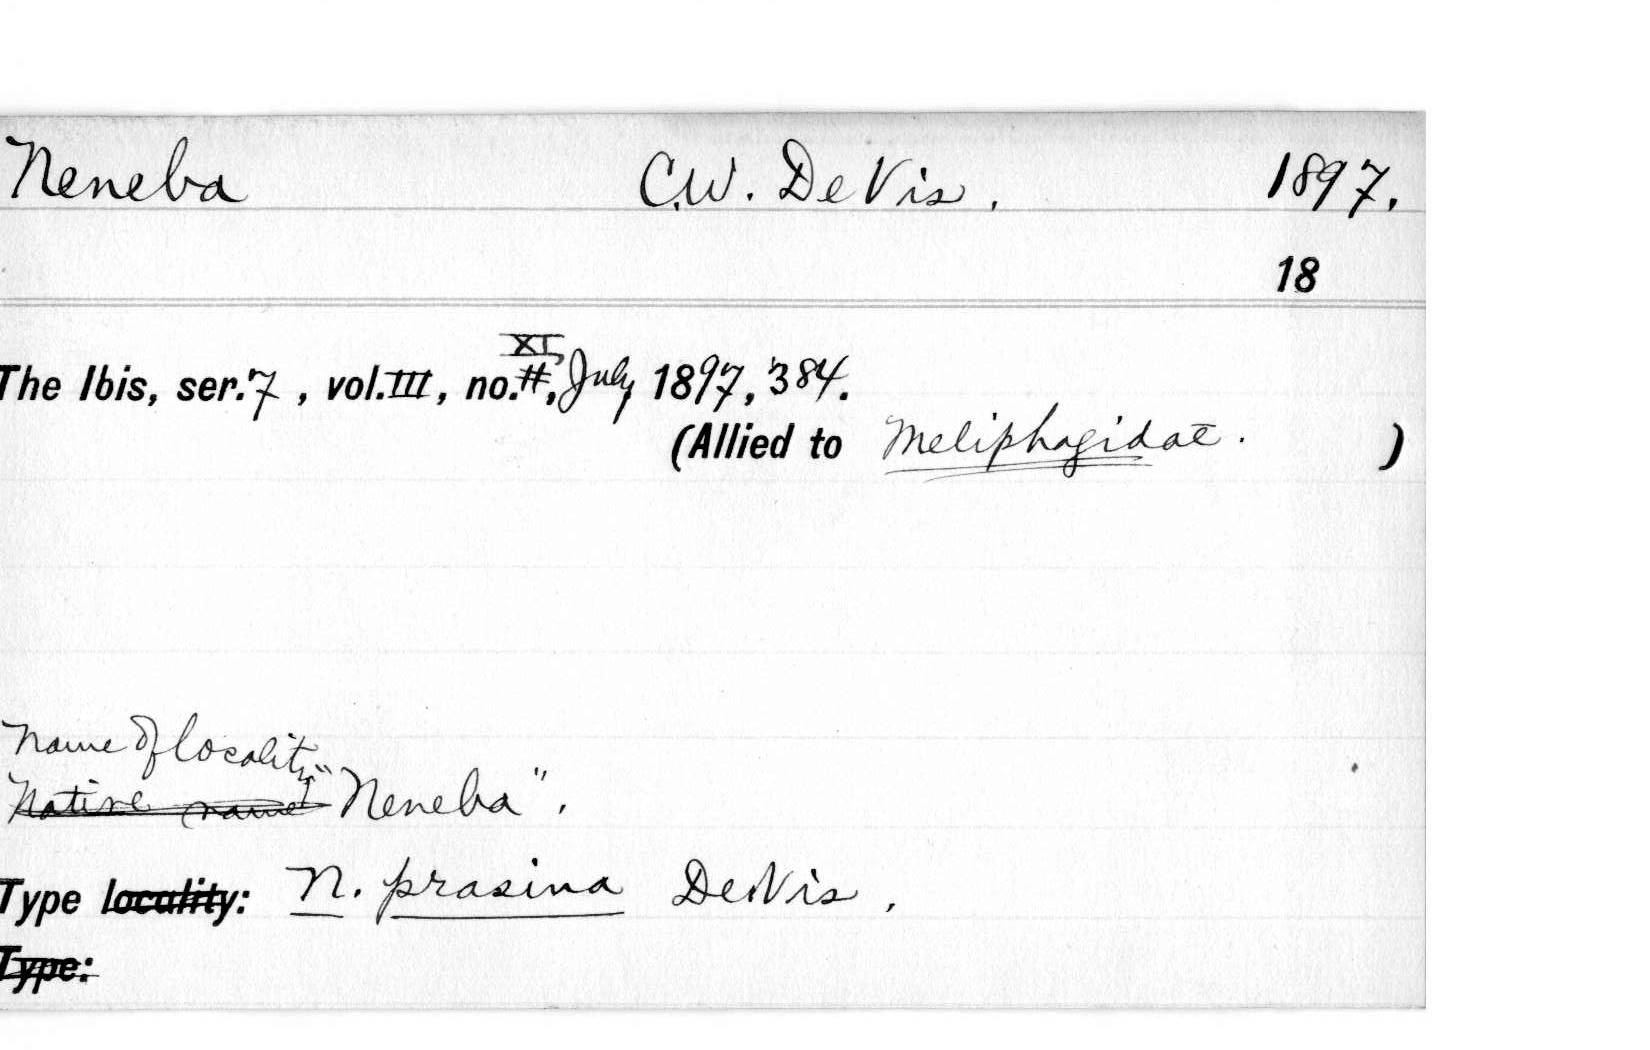 Neneba C.W. DeVis. 1897.
18
XI,
The Ibis, ser. 7, vol. III, no. #, July 1897, 384.
(Allied to Meliphagidae. )
Name of locality
Native name "Neneba".
Type locality: N. prasina DeVis.
Type: